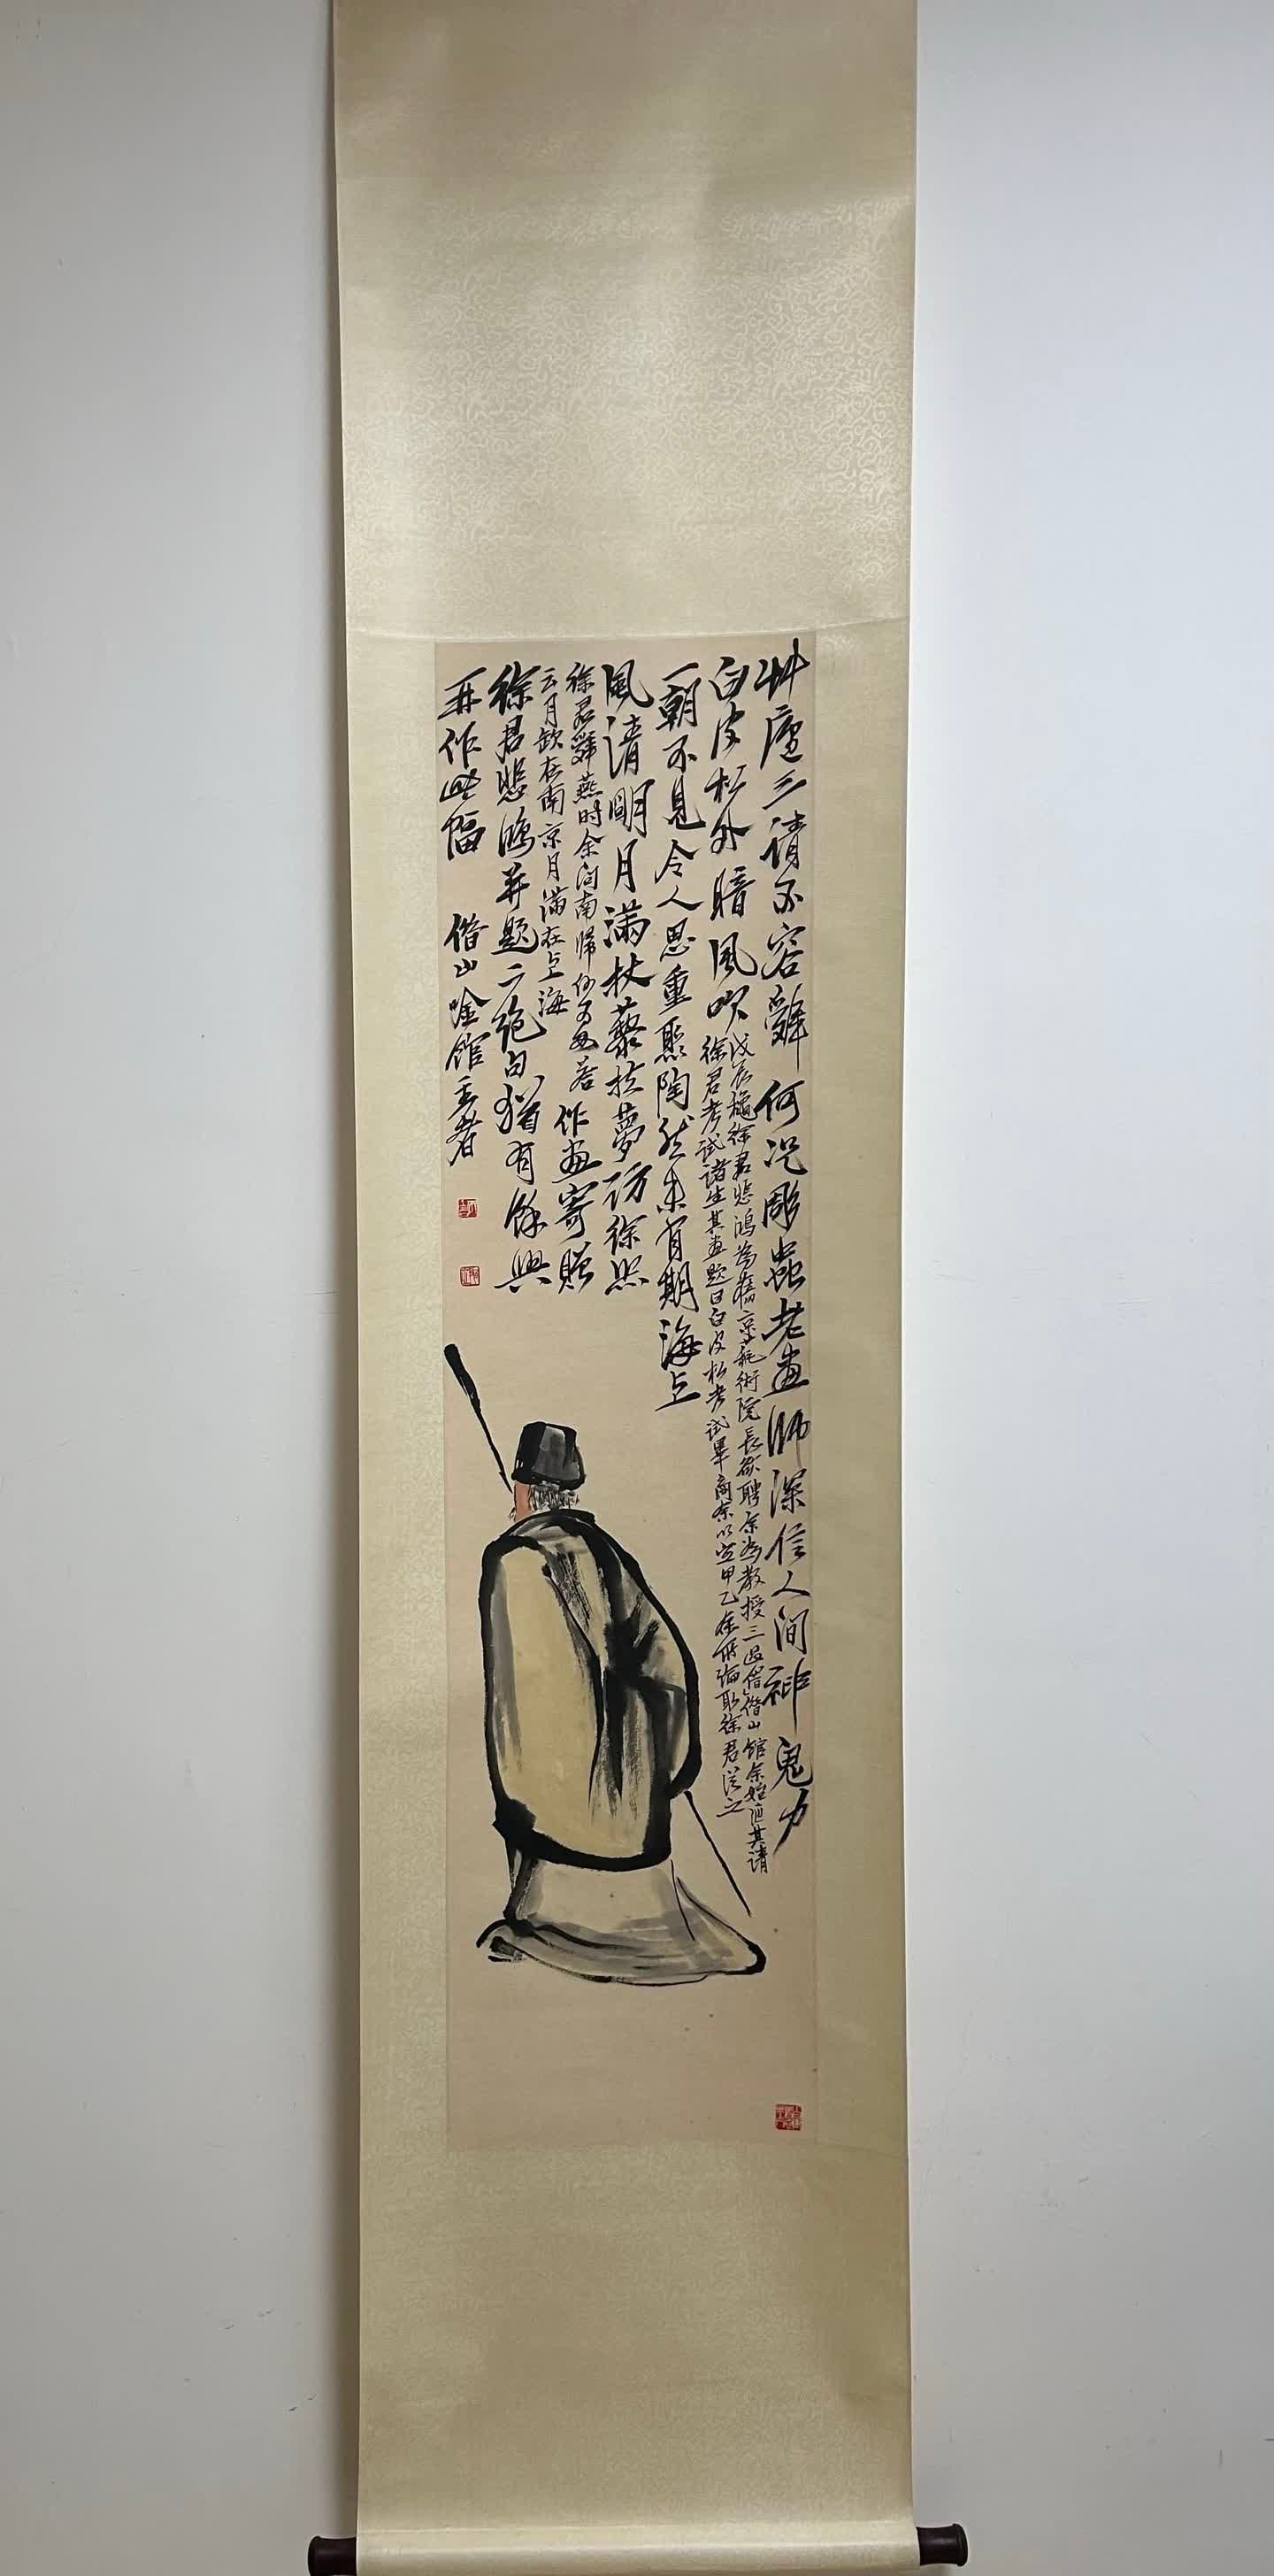 艸廬三請不容辭何況彫蟲老畫師深信人間神鬼力
白皮松外暗風吹
戊辰穐徐君悲鴻為舊京藝術院長欲聘余為教授三過借山館余始應其請
徐君考試諸生其畫題曰白皮松考試畢商余以定甲乙余所論取徐君從之
一朝不見令人思重聚陶然未有期海上
風清明月滿杖藜扶夢訪徐熙
徐君辭燕時余問南歸何所
云月缺在南京月滿在上海
作畫寄贈
徐君悲鴻并題二絕句猶有餘興
再作此幅 借山唫館主者